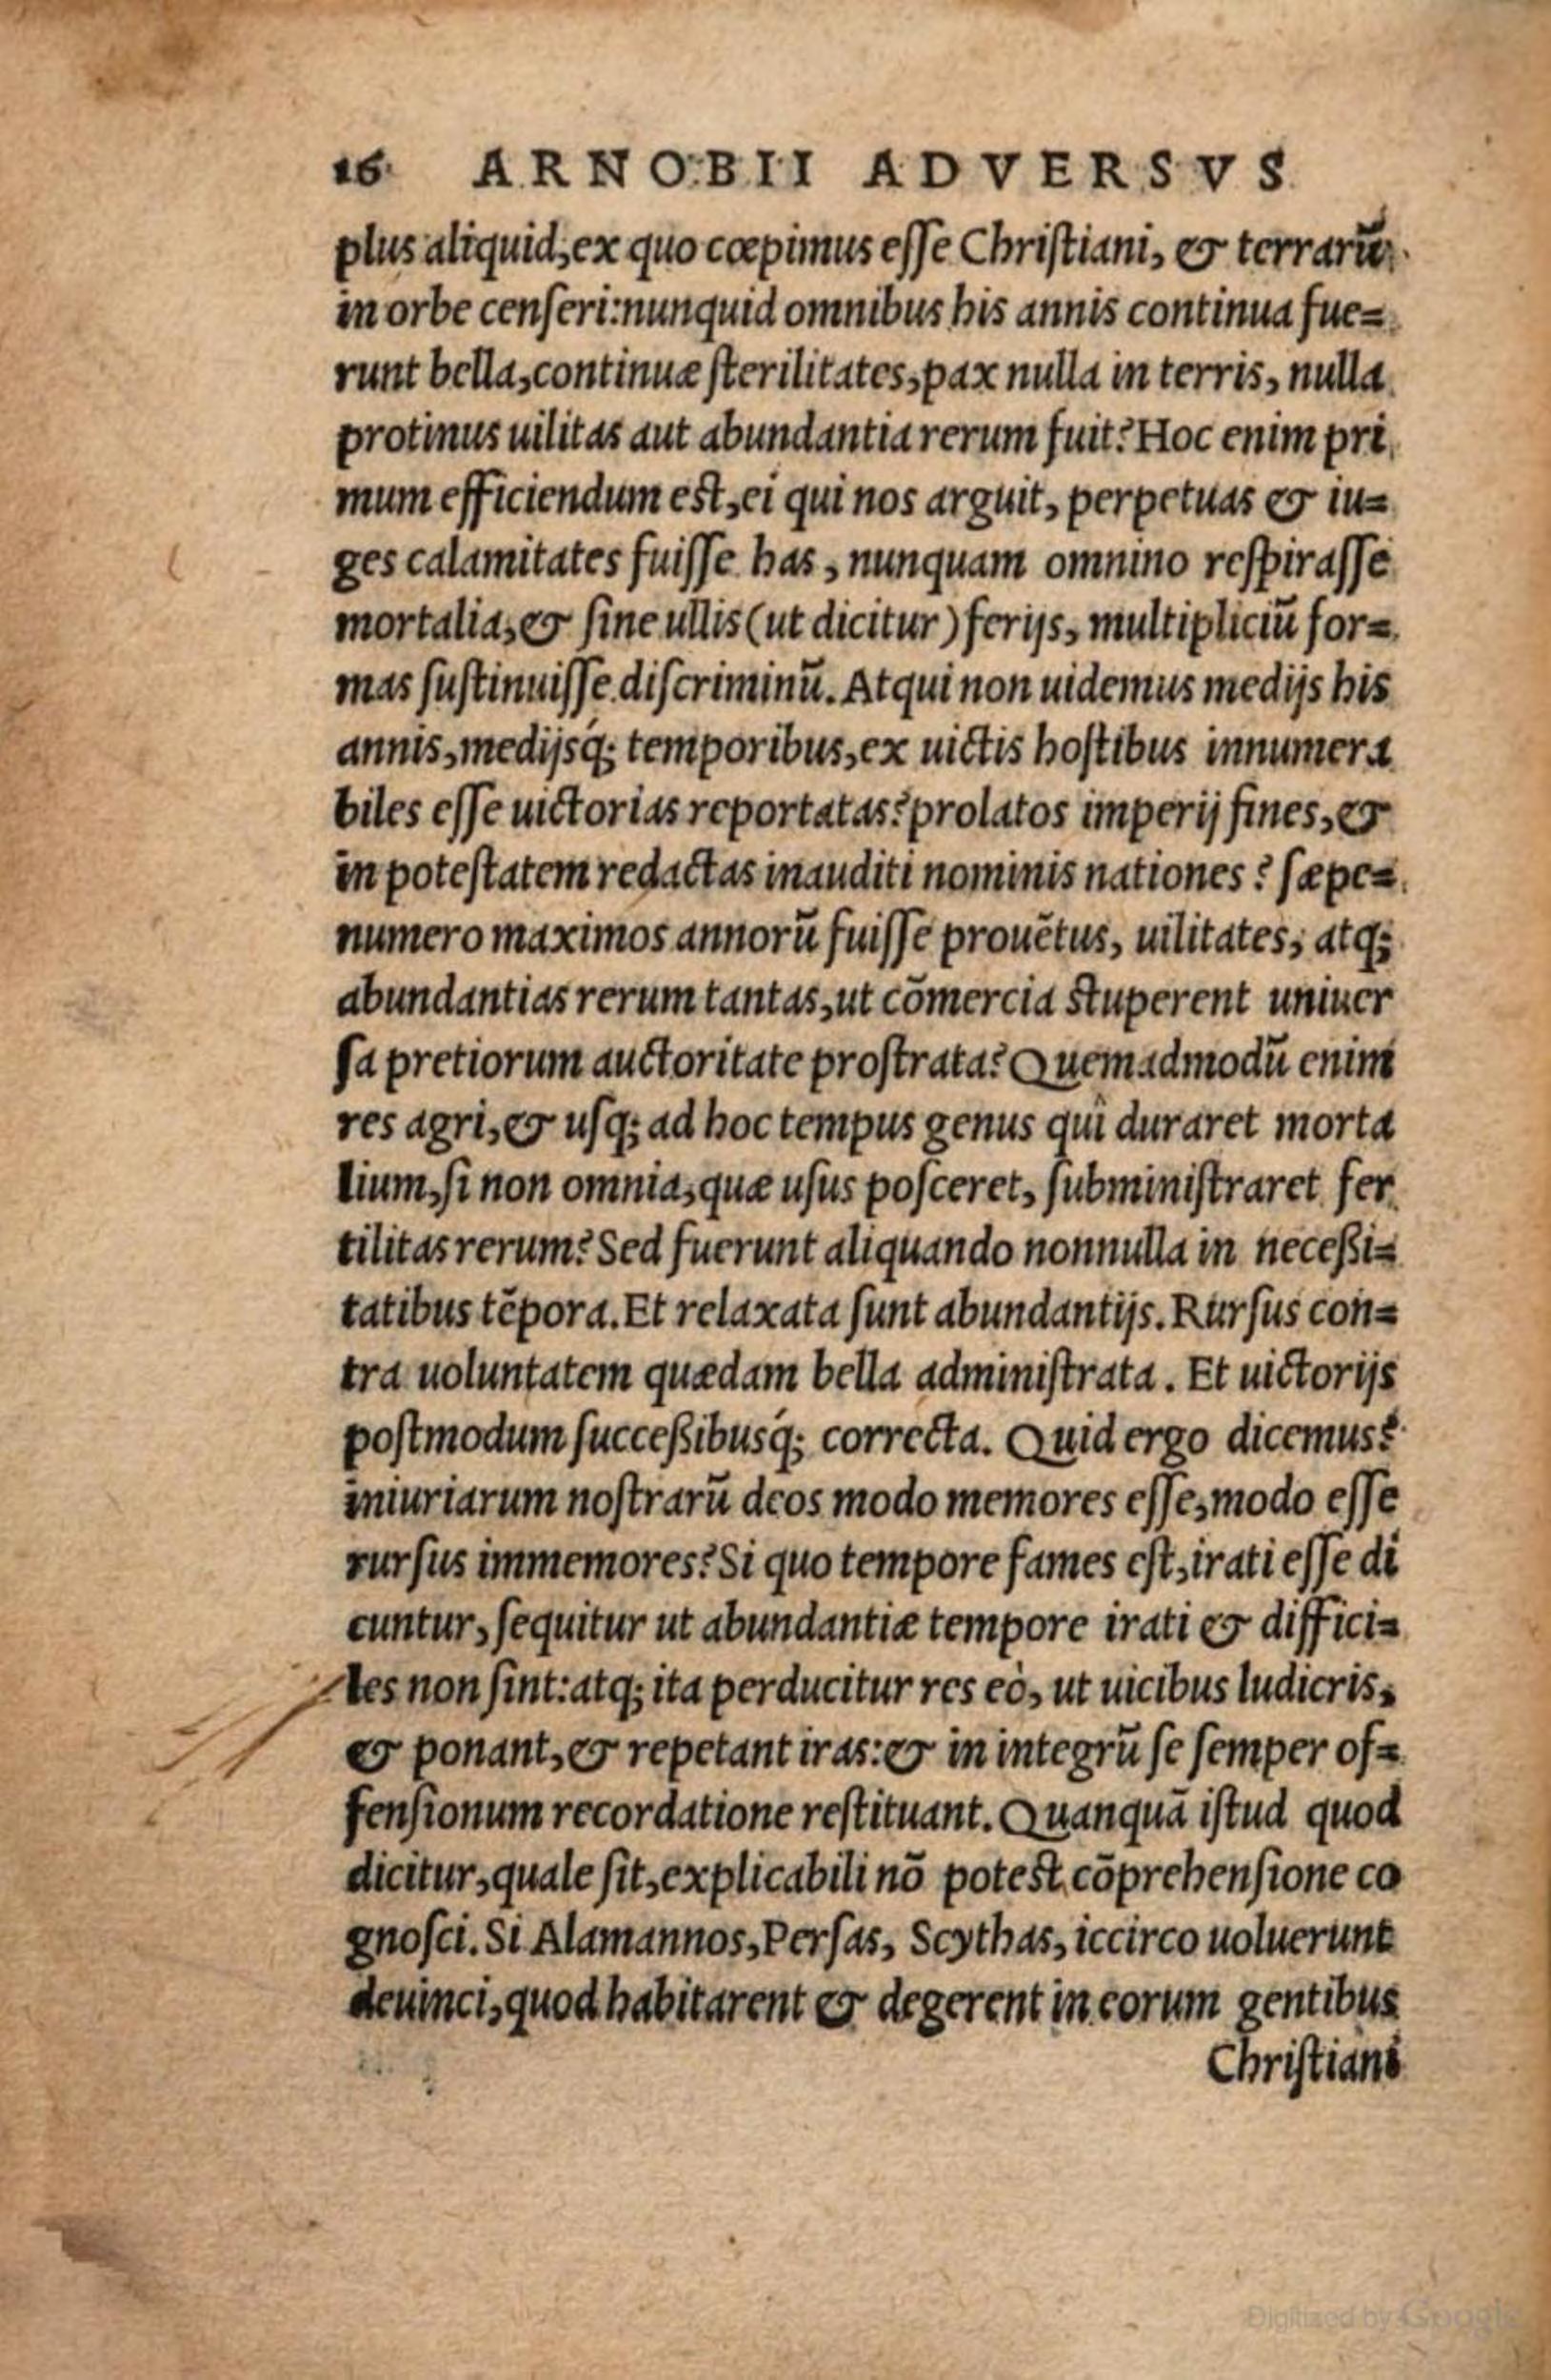 16 ARNOBII ADVERSVS
plus aliquid, ex quo cœpimus eſſe Chriſtiani, & terrarū
in orbe cenſeri: nunquid omnibus his annis continua fue=
runt bella, continuæ ſterilitates, pax nulla in terris, nulla
protinus uilitas aut abundantia rerum fuit? Hoc enim pri
mum efficiendum est, ei qui nos arguit, perpetuas & iu=
ges calamitates fuiſſe has, nunquam omnino reſpiraſſe
mortalia, & ſine ullis (ut dicitur) ferijs, multipliciū for=
mas ſuſtinuiſſe diſcriminū. Atqui non uidemus medijs his
annis, medijsq́; temporibus, ex uictis hoſtibus innumera
biles eſſe uictorias reportatas? prolatos imperij fines, &
in poteſtatem redactas inauditi nominis nationes? ſæpe=
numero maximos annorū fuiſſe prouētus, uilitates, atq;
abundantias rerum tantas, ut cōmercia stuperent uniuer
ſa pretiorum auctoritate proſtrata? Quemadmodū enim
res agri, & uſq; ad hoc tempus genus quî duraret morta
lium, ſi non omnia, quæ uſus poſceret, ſubminiſtraret fer
tilitas rerum? Sed fuerunt aliquando nonnulla in neceßi=
tatibus tēpora. Et relaxata ſunt abundantijs. Rurſus con=
tra uoluntatem quædam bella adminiſtrata. Et uictorijs
poſtmodum succeßibusq́; correcta. Quid ergo dicemus?
iniuriarum noſtrarū deos modo memores eſſe, modo eſſe
rurſus immemores? Si quo tempore fames eſt, irati eſſe di
cuntur, ſequitur ut abundantiæ tempore irati & diffici=
les non ſint: atq; ita perducitur res eò, ut uicibus ludicris,
& ponant, & repetant iras: & in integrū ſe ſemper of=
fenſionum recordatione reſtituant. Quanquā iſtud quod
dicitur, quale ſit, explicabili nō potest cōprehenſione co
gnoſci. Si Alamannos, Perſas, Scythas, iccirco uoluerunt
deuinci, quod habitarent & degerent in eorum gentibus
Chriſtiani
Digitized by Google